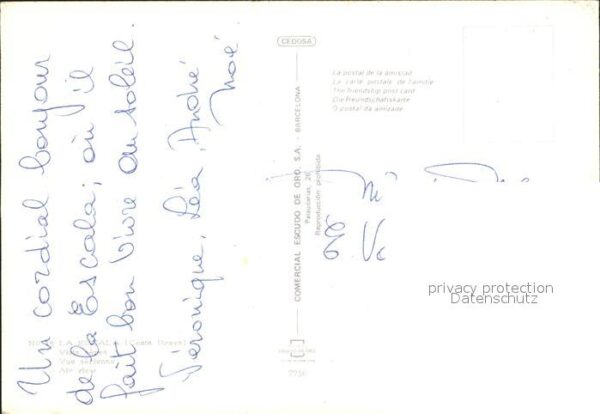 Un cordial bonjour
de la Escala, où il
fait bon vivre au soleil.
Véronique, Léa, André
Noé
CEDOSA
La postal de la amistad
La carte postale de l'amitié
The friendship post card
Die Freundschaftskarte
O postal da amizade
COMERCIAL ESCUDO DE ORO, S.A. - BARCELONA
Reproducción prohibida
LA ESCALA (Costa Brava)
Vue aérienne
Air view
privacy protection
Datenschutz